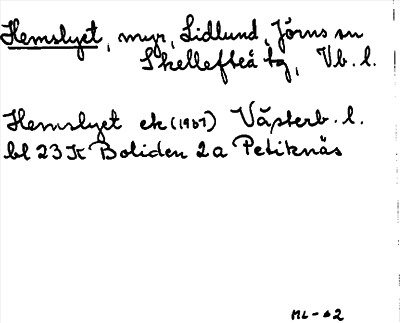 Hemslyet, myr, Lidlund, Jörns sn
Skellefteå tg, Vb. l.
Hemslyet ek (1967) Västerb. l.
bl 23 K Boliden 2a Petiknäs
ML-62